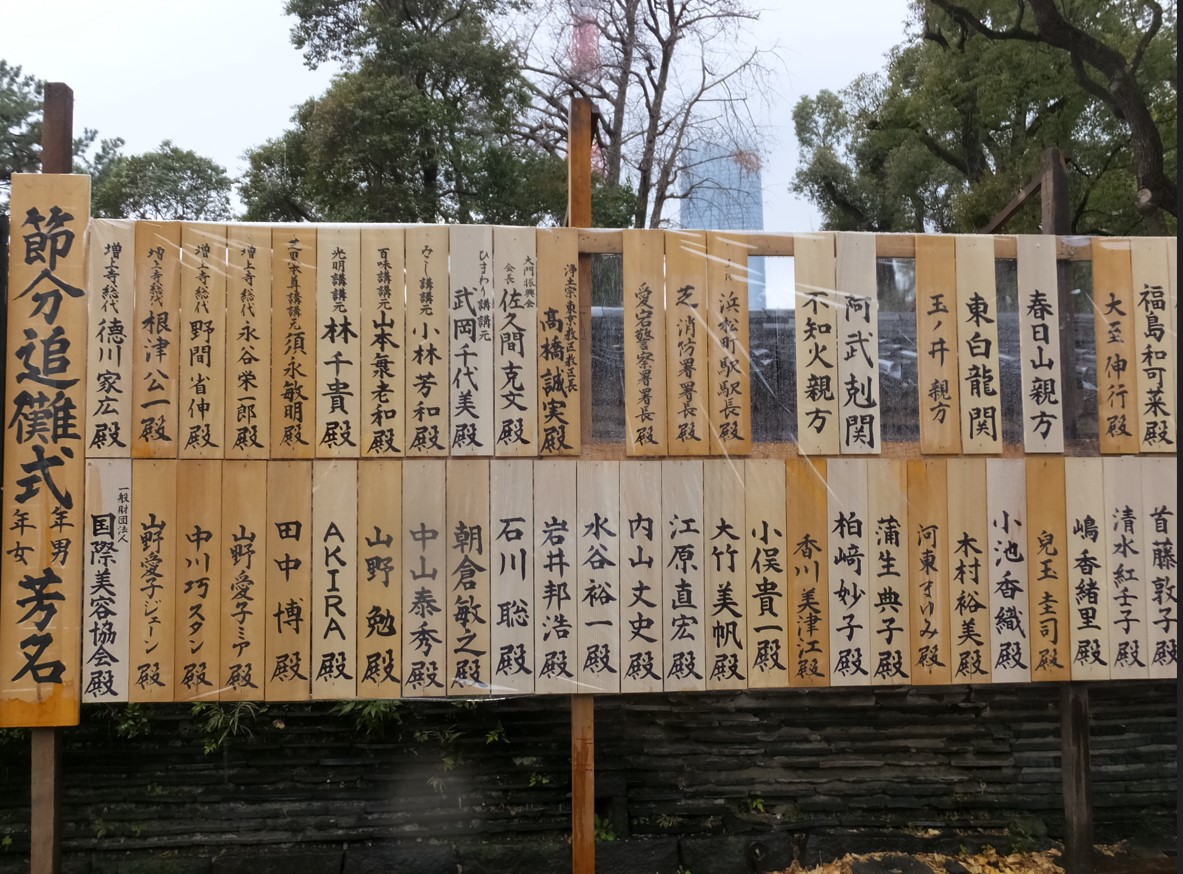 節分追儺式年男年女芳名
増上寺総代 徳川家広殿
増上寺総代 根津公一殿
増上寺総代 野間省伸殿
増上寺総代 永谷栄一郎殿
須永敏明殿
光明講講元 林千貴殿
百味講講元 山本衆老和殿
みこし講講元 小林芳和殿
ひまわり講講元 武岡千代美殿
大門振興会会長 佐久間克文殿
浄土宗東京教区教区長 高橋誠実殿
愛宕警察署署長殿
芝消防署署長殿
浜松町駅駅長殿
不知火親方
阿武剋関
玉ノ井親方
東白龍関
春日山親方
大至伸行殿
福島和可菜殿
一般財団法人 国際美容協会殿
山野愛子ジェーン殿
中川巧スタン殿
山野愛子ミア殿
田中博殿
AKIRA殿
山野勉殿
中山泰秀殿
朝倉敏之殿
石川聡殿
岩井邦浩殿
水谷裕一殿
内山丈史殿
江原直宏殿
大竹美帆殿
小俣貴一殿
香川美津江殿
柏﨑妙子殿
蒲生典子殿
河東まゆみ殿
木村裕美殿
小池香織殿
兒玉圭司殿
嶋香緒里殿
清水紅壬子殿
首藤敦子殿